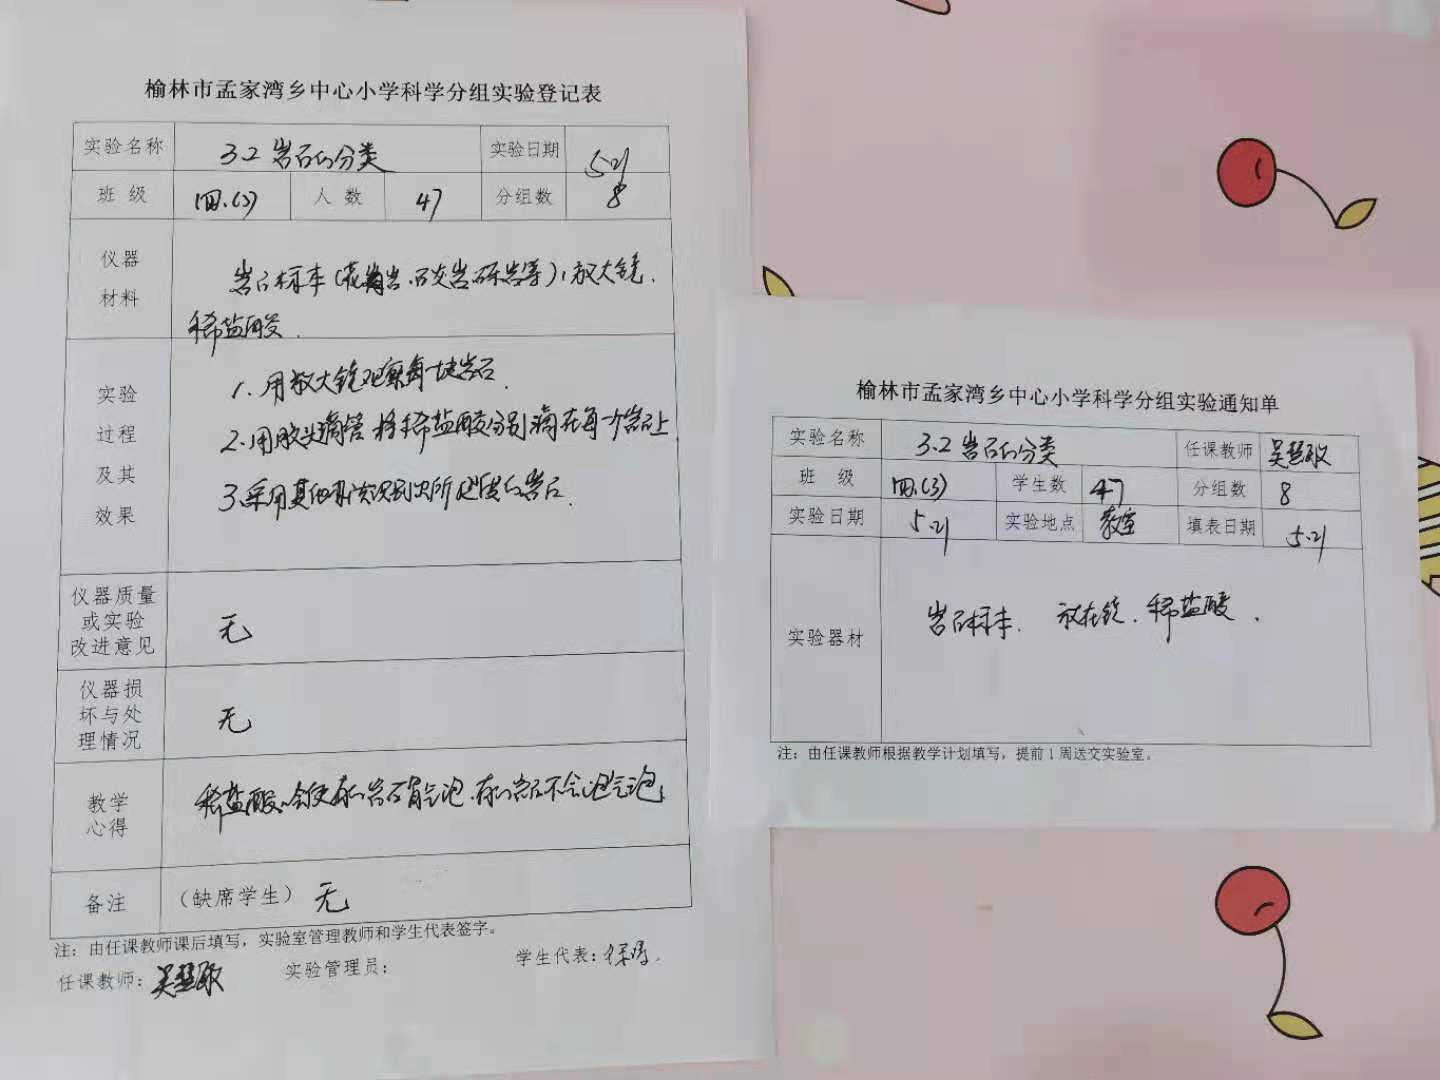 榆林市孟家湾乡中心小学科学分组实验登记表
实验名称 3.2 岩石的分类 实验日期 5.21
班 级 四.(3) 人 数 47 分组数 8
仪器
材料
岩石标本(花岗岩、石灰岩、砾岩等),放大镜.
稀盐酸.
实验
过程
及其
效果
1.用放大镜观察每一块岩石.
2.用胶头滴管将稀盐酸分别滴在每一个岩石上
3.采用其他方法识别出所提供的岩石.
仪器质量
或实验
改进意见
无
仪器损
坏与处
理情况
无
教学
心得
稀盐酸会使有的岩石冒气泡.有的岩石不会冒气泡
备注 (缺席学生) 无
注:由任课教师课后填写,实验室管理教师和学生代表签字。
任课教师: 实验管理员: 学生代表:
榆林市孟家湾乡中心小学科学分组实验通知单
实验名称 3.2 岩石的分类 任课教师
班 级 四.(3) 学生数 47 分组数 8
实验日期 5.21 实验地点 教室 填表日期 5.21
实验器材
岩石标本. 放大镜. 稀盐酸.
注:由任课教师根据教学计划填写,提前1周送交实验室。